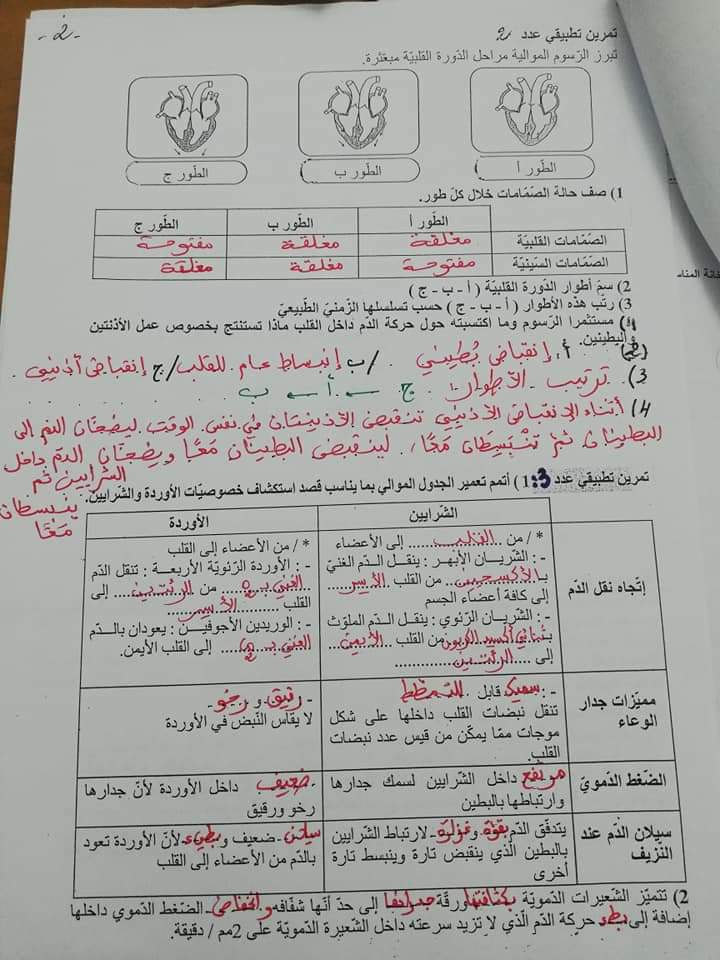 - 2 -
تمرين تطبيقي عدد 2
تبرز الرّسوم الموالية مراحل الدّورة القلبيّة مبعثرة.
الطّور أ الطّور ب الطّور ج
1) صف حالة الصّمّامات خلال كلّ طور.
الطّور أ الطّور ب الطّور ج
الصّمّامات القلبيّة مغلقة مغلقة مفتوحة
الصّمّامات السّينيّة مفتوحة مغلقة مغلقة
2) سمّ أطوار الدّورة القلبيّة ( أ - ب - ج )
3) رتّب هذه الأطوار ( أ - ب - ج ) حسب تسلسلها الزّمنيّ الطّبيعيّ
4) مستثمرا الرّسوم وما اكتسبته حول حركة الدّم داخل القلب ماذا تستنتج بخصوص عمل الأذنتين
والبطينين.
2) أ/ إنقباض بُطيني / ب/ إنبساط عام للقلب / ج/ إنقباض أذيني
3) ترتيب الأطوار: ج ← أ ← ب
4) أثناء الإنقباض الأذيني تنقبض الأذينتان في نفس الوقت ليضخّان الدم إلى
البطينان ثم تنبسطان معًا، لينقبض البطينان معًا ويضخّان الدم داخل
الشرايين ثم
ينبسطان
معًا
تمرين تطبيقي عدد 3: 1) أتمم تعمير الجدول الموالي بما يناسب قصد استكشاف خصوصيّات الأوردة والشّرايين.
الشّرايين الأوردة
إتّجاه نقل الدّم
* / من القلب إلى الأعضاء
- : الشّريان الأبهر : ينقل الدّم الغنيّ
بـالأكسجين من القلب الأيسر
إلى كافة أعضاء الجسم
- : الشّريان الرّئوي : ينقل الدّم الملوّث
بـثاني أكسيد الكربون من القلب الأيمن
إلى الرئتين
* / من الأعضاء إلى القلب
- : الأوردة الرّئويّة الأربعة : تنقل الدّم
الغني بـ من الرئتين إلى
القلب الأيسر
- : الوريدين الأجوفين : يعودان بالدّم
الغني بـ إلى القلب الأيمن.
مميّزات جدار
الوعاء
- : سميك قابل للتمطط
تنقل نبضات القلب داخلها على شكل
موجات ممّا يمكّن من قيس عدد نبضات
القلب.
- رقيق و رخو
لا يقاس النّبض في الأوردة
الضّغط الدّمويّ
مرتفع داخل الشّرايين لسمك جدارها
وارتباطها بالبطين
ضعيف داخل الأوردة لأنّ جدارها
رخو ورقيق
سيلان الدّم عند
النّزيف
يتدفّق الدّم بقوّة و لارتباط الشّرايين
بالبطين الّذي ينقبض تارة وينبسط تارة
أخرى
ضعيف و بطيء لأنّ الأوردة تعود
بالدّم من الأعضاء إلى القلب
2) تتميّز الشّعيرات الدّمويّة بكثافتها ورقّة جدرانها إلى حدّ أنّها شفّافه وانخفاض الضّغط الدّموي داخلها
إضافة إلى بطء حركة الدّم الّذي لا تزيد سرعته داخل الشّعيرة الدّمويّة على 2مم / دقيقة.